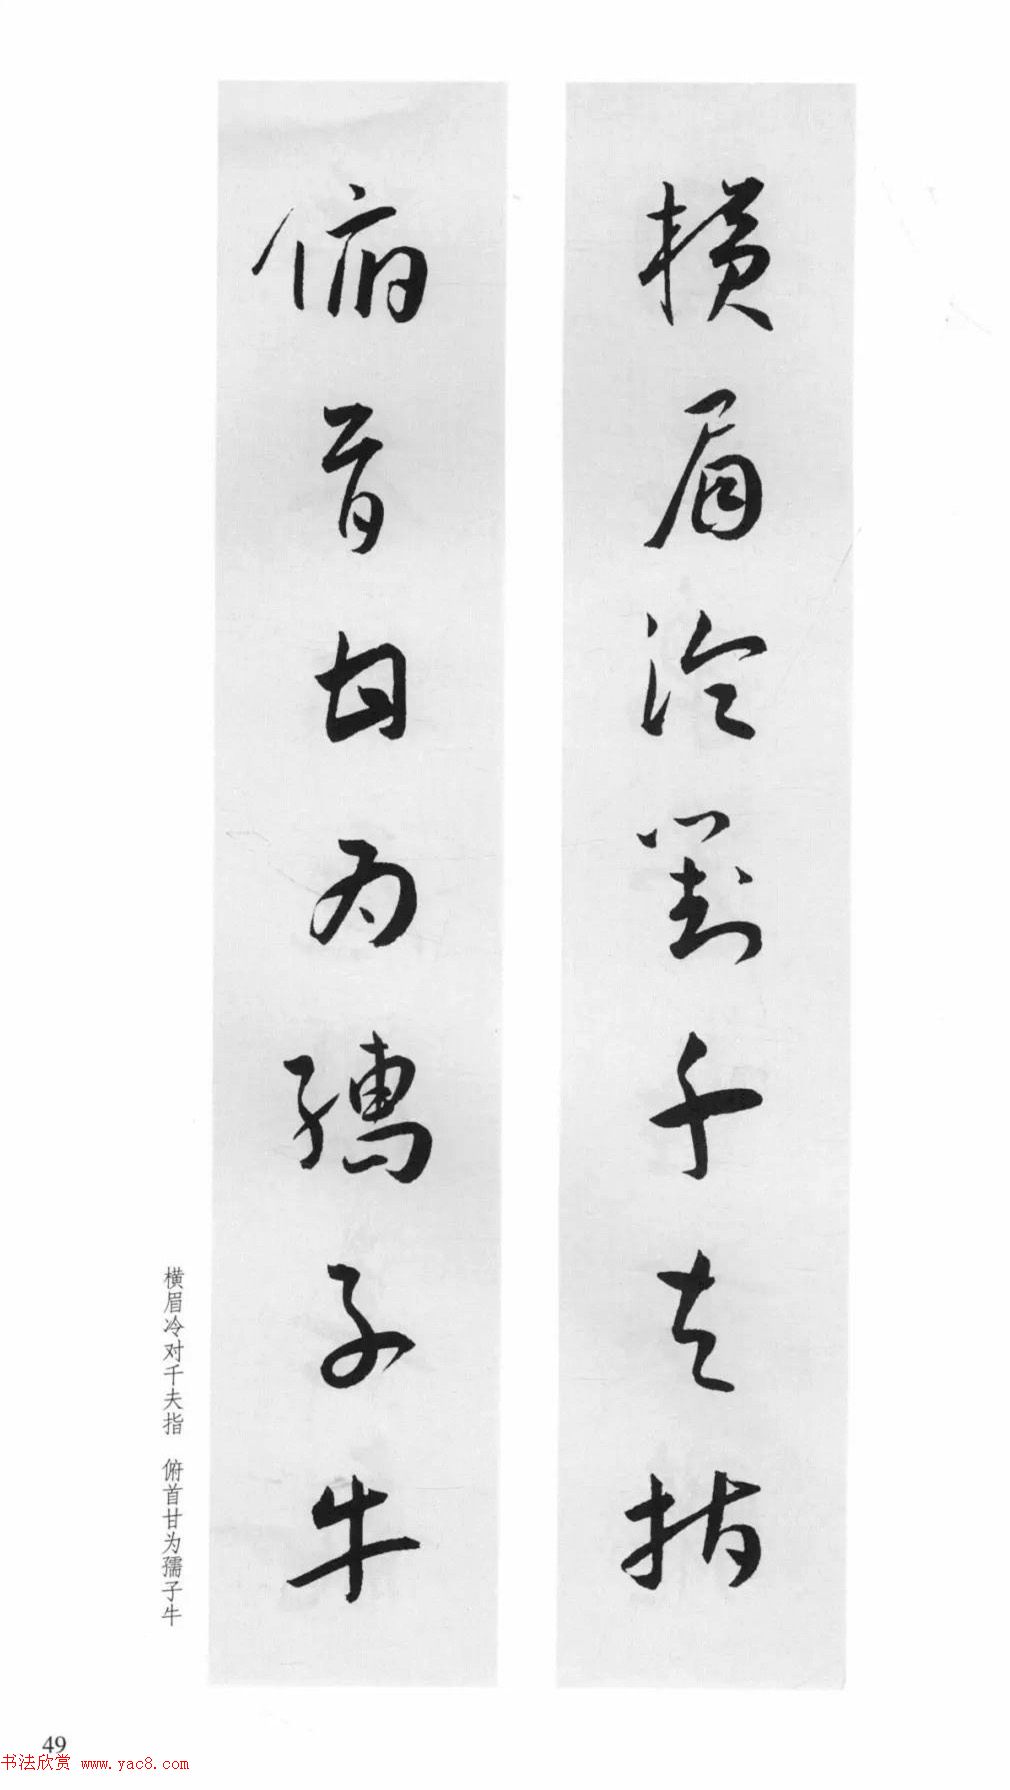 橫眉冷對千夫指
俯首甘为孺子牛
横眉冷对千夫指 俯首甘为孺子牛
49
书法欣赏 www.yac8.com